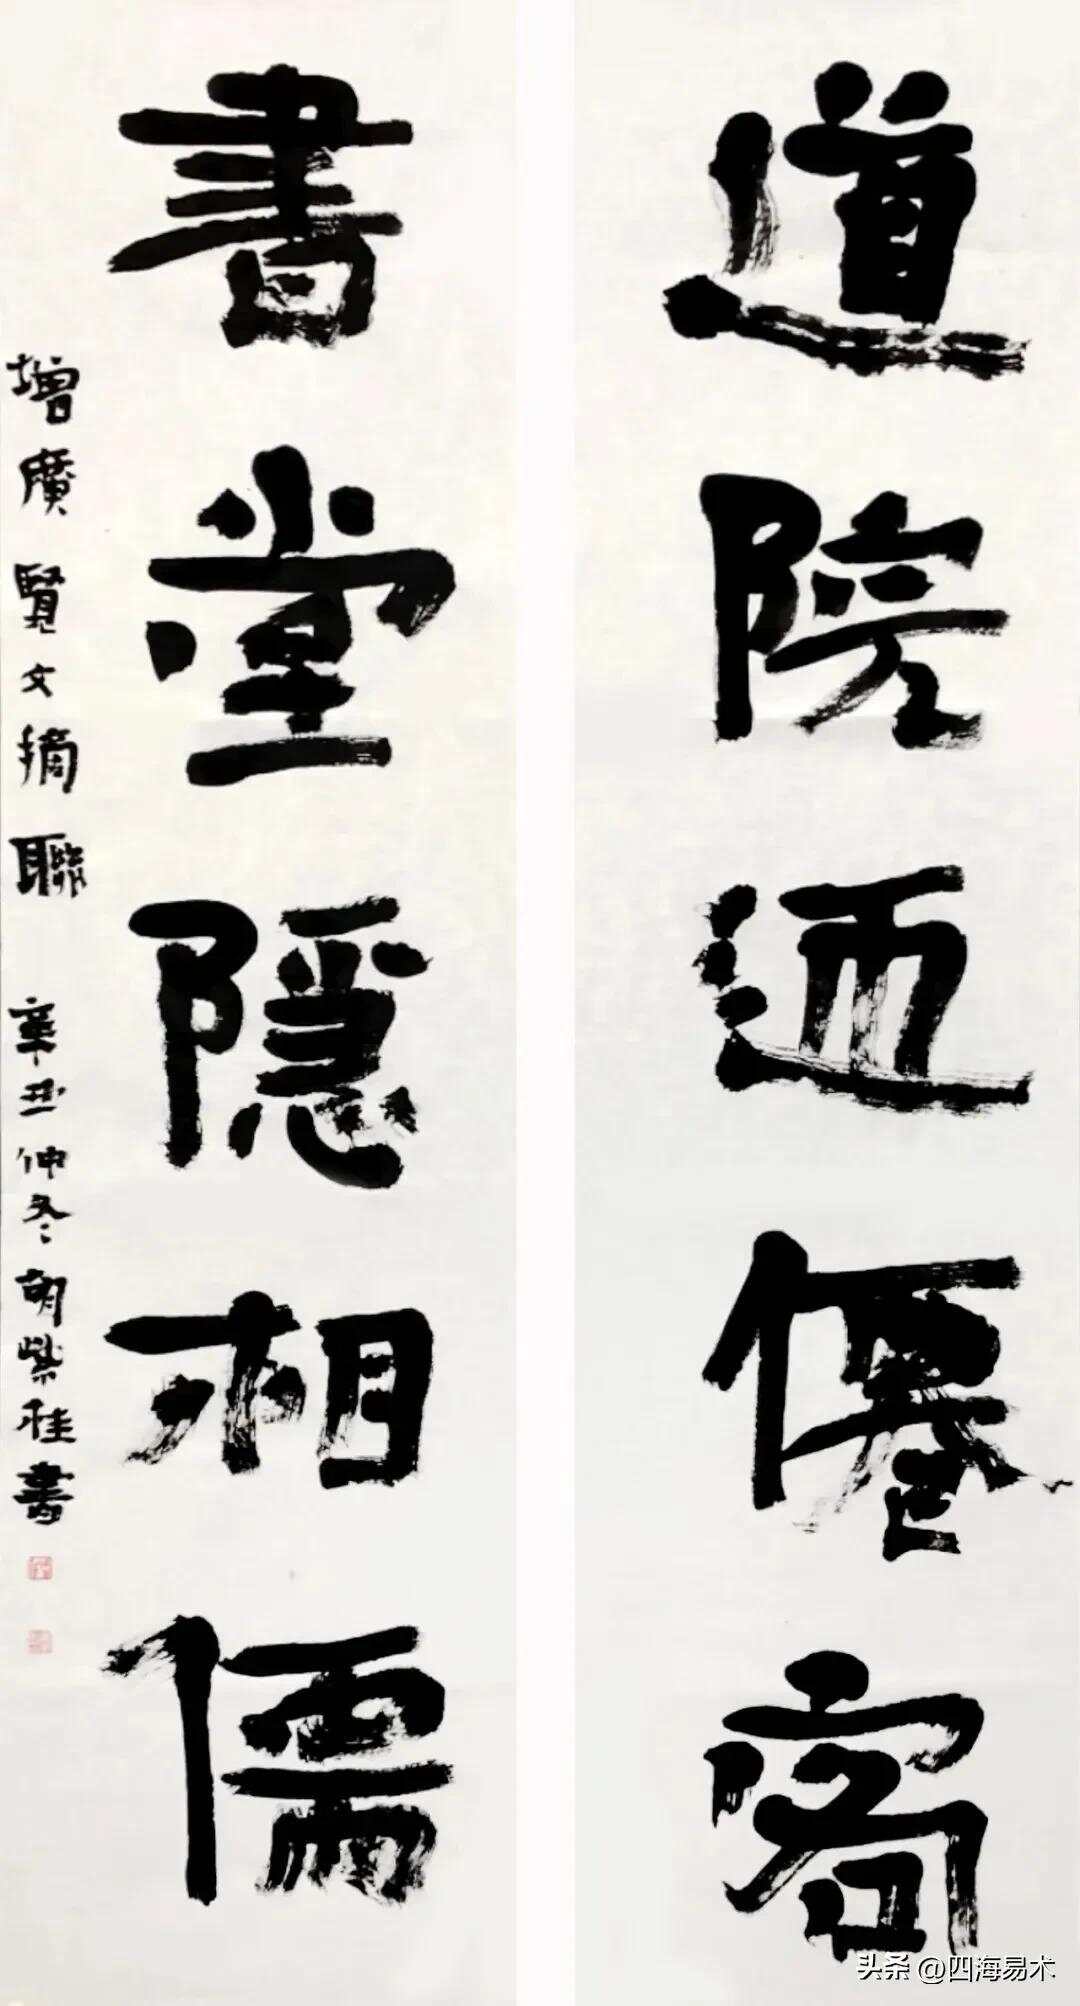 道院迎僊客
書堂隱相儒
增廣賢文摘聯 辛丑仲冬胡紫桂書
头条 @四海易术